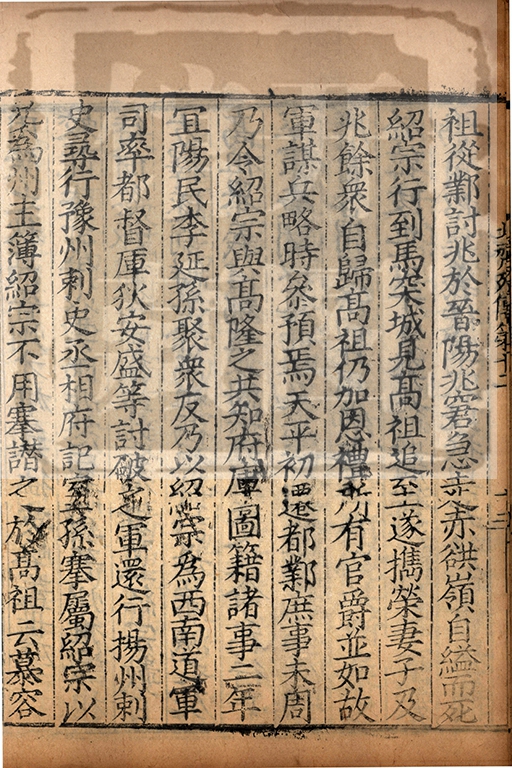 祖從鄴討兆於晉陽兆窘急走赤谼嶺自縊而死
紹宗行到馬突城見髙祖追至遂攜榮妻子及
兆餘衆自歸髙祖仍加恩禮所有官爵並如故
軍謀兵略時叅預焉天平初遷都鄴庶事未周
乃令紹宗與髙隆之共知府庫圖籍諸事二年
宜陽民李延孫聚衆反乃以紹宗為西南道軍
司率都督厙狄安盛等討破之軍還行揚州刺
史尋行豫州刺史丞相府記室孫搴屬紹宗以
兄為州主簿紹宗不用搴譖之於髙祖云慕容